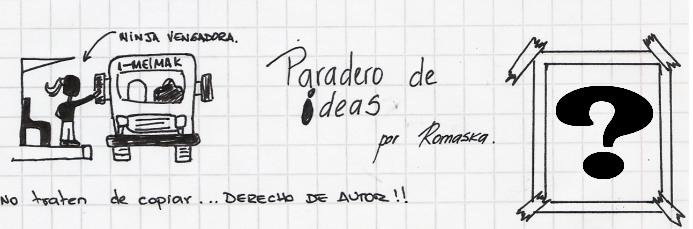 NINJA VENGADORA.
1-MEIMAK
Paradero de
ideas
por Romaska.
?
No traten de copiar... DERECHO DE AUTOR!!